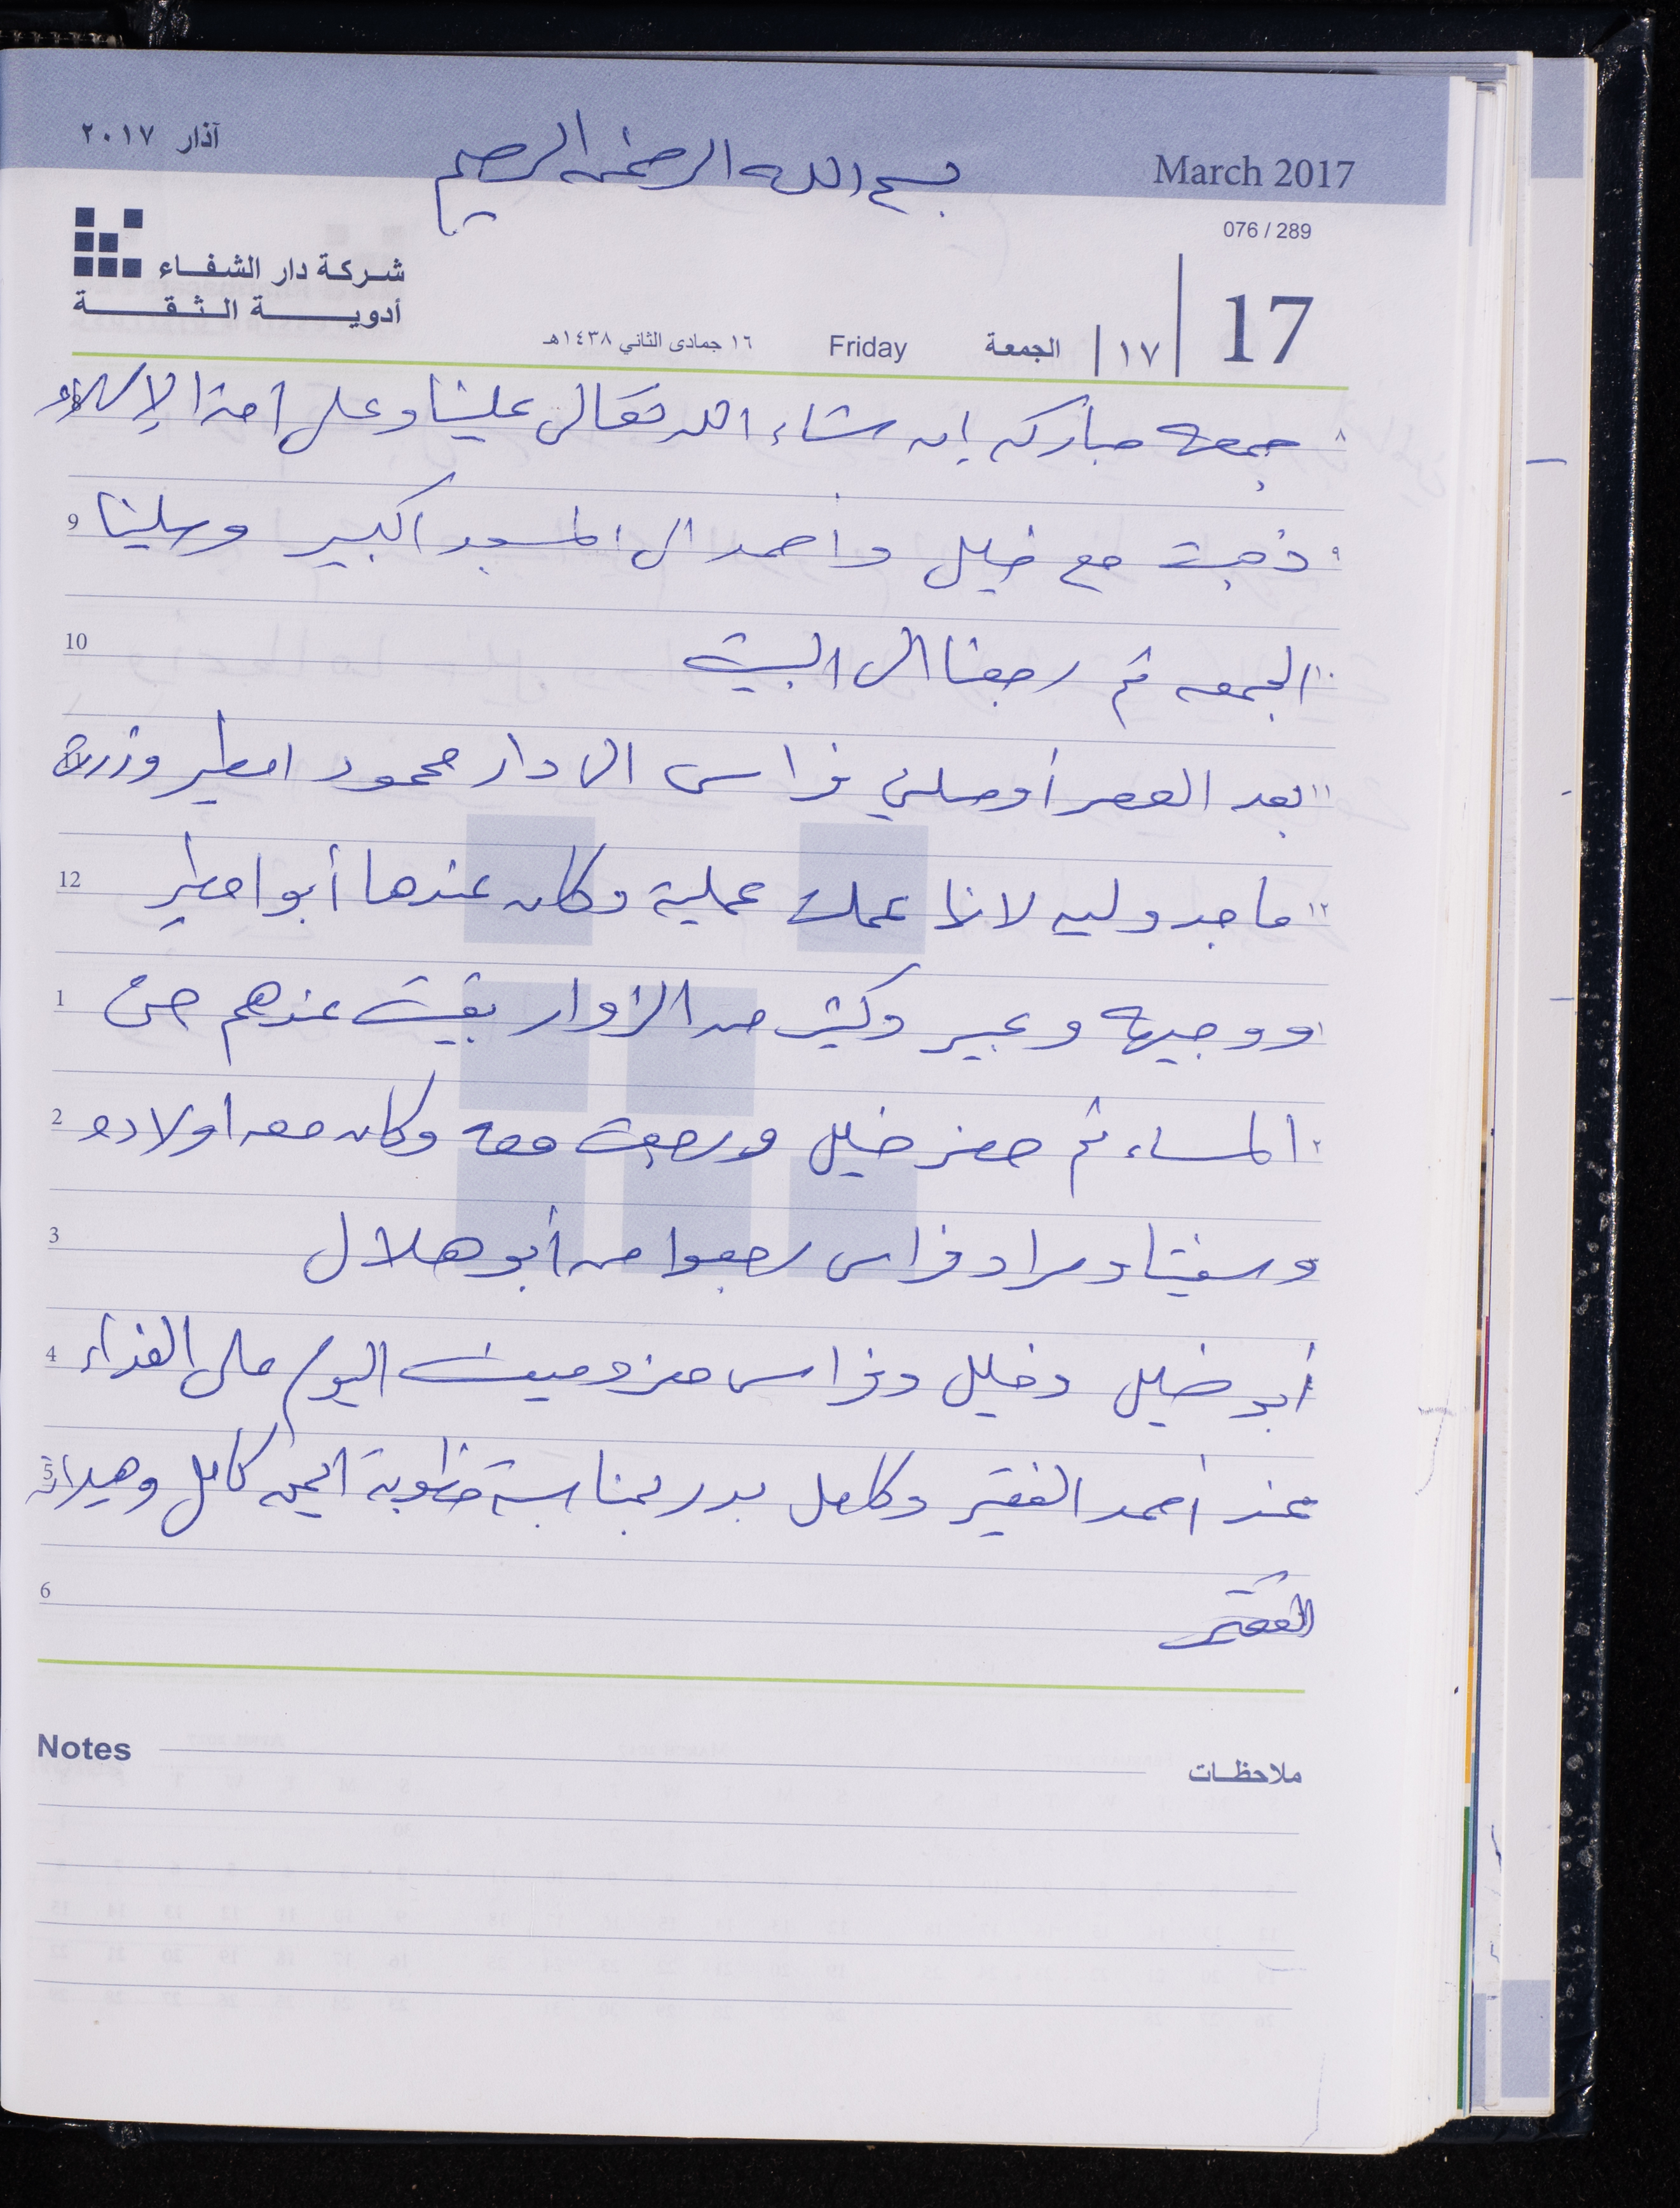 آذار ٢٠١٧
بسم الله الرحمن الرحيم
March 2017
076 / 289
شركة دار الشفاء
أدوية الثقة
17 | ١٧ | الجمعة Friday ١٦ جمادى الثاني ١٤٣٨هـ
٨ جمعه مباركه إن شاء الله تعالى علينا وعلى امة الإسلام
٩ ذهبت مع خليل واحمد الى المسجد اكبير وصلينا 9
١٠ الجمعه ثم رجعنا الى البيت 10
١١ بعد العصر أوصلني فراس الى دار محمود امطير وزرت
١٢ ماجدوليه لانها عملت عملية وكان عندها أبو امطير 12
١ ووجيهه وعبير وكثير من الزوار بقيت عندهم حتى 1
٢ المساء ثم حضر خليل ورجعت معه وكان معه اولاده 2
وسراد فراس رجعوا من أبو هلال 3
أبو خليل وخليل وفراس معزومين اليوم على الغداء 4
عند أحمد الفقير وكامل بدر بمناسبة خطوبة كامل وهيلانة 5
الفقير 6
Notes ملاحظات